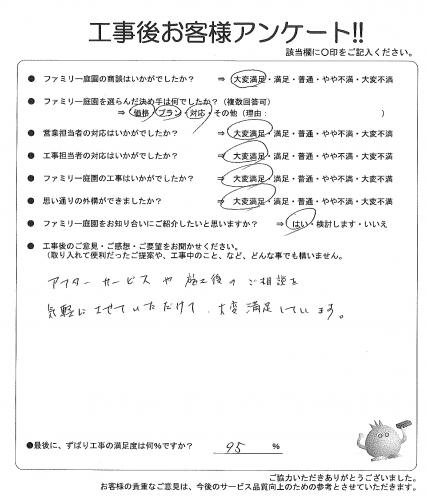 工事後お客様アンケート!!
該当欄に〇印をご記入ください。
● ファミリー庭園の商談はいかがでしたか? ⇒ 大変満足・満足・普通・やや不満・大変不満
● ファミリー庭園を選らんだ決め手は何でしたか?(複数回答可)
⇒ 価格・プラン・対応・その他(理由: )
● 営業担当者の対応はいかがでしたか? ⇒ 大変満足・満足・普通・やや不満・大変不満
● 工事担当者の対応はいかがでしたか? ⇒ 大変満足・満足・普通・やや不満・大変不満
● ファミリー庭園の工事はいかがでしたか? ⇒ 大変満足・満足・普通・やや不満・大変不満
● 思い通りの外構ができましたか? ⇒ 大変満足・満足・普通・やや不満・大変不満
● ファミリー庭園をお知り合いにご紹介したいと思いますか? ⇒ はい・検討します・いいえ
● 工事後のご意見・ご感想・ご要望をお聞かせください。
(取り入れて便利だったご提案や、工事中のこと、など、どんな事でも構いません。
アフターサービスや施工後のご相談を
気軽にさせていただけて、大変満足しています。
●最後に、ずばり工事の満足度は何%ですか? 95 %
ご協力いただきありがとうございました。
お客様の貴重なご意見は、今後のサービス品質向上のための参考とさせていただきます。